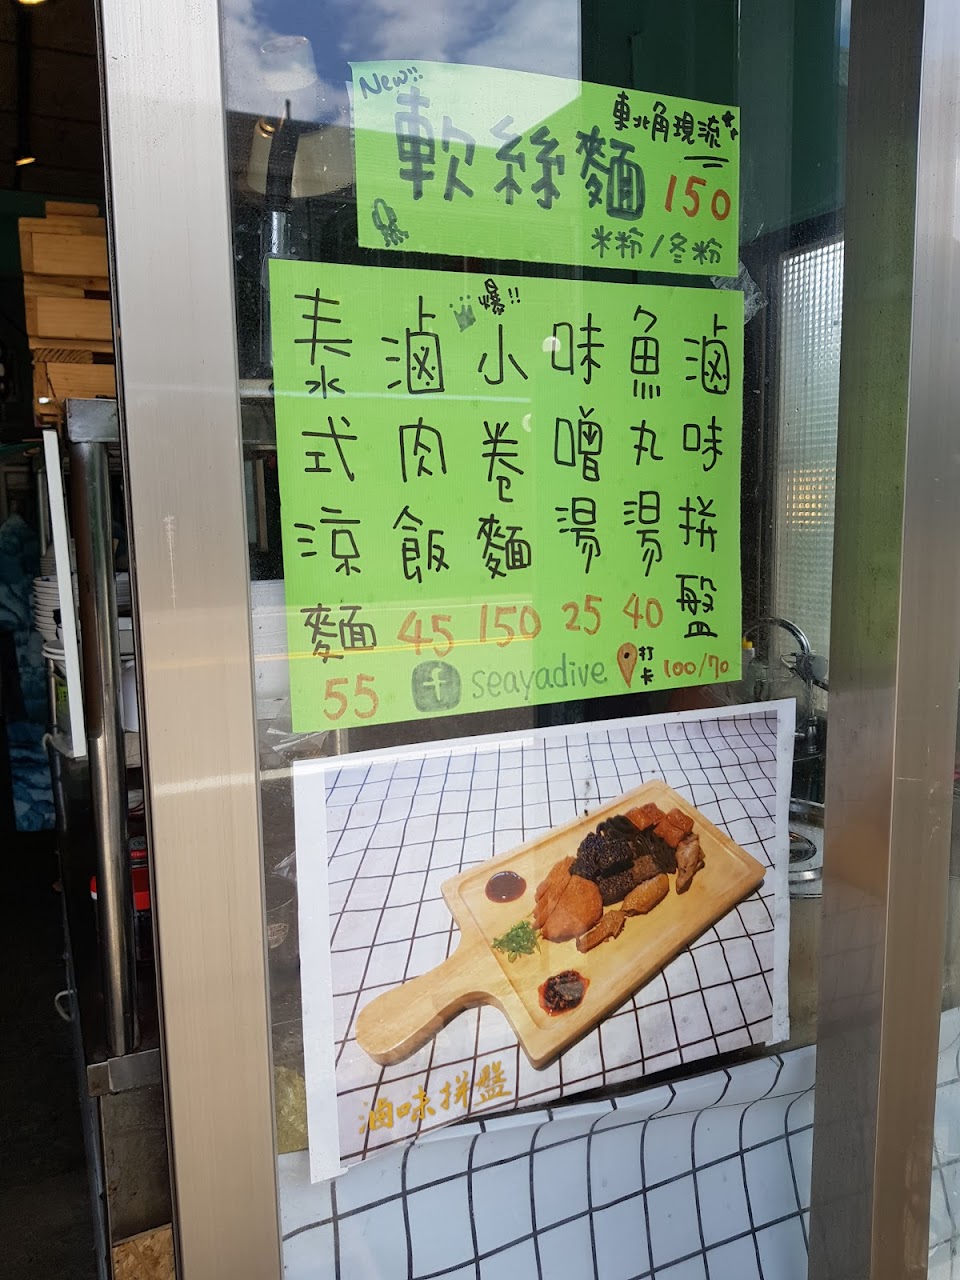 New!!
東北角現流
軟絲麵 150
米粉/冬粉
滷味拼盤 100/70
魚丸湯 40
味噌湯 25
爆!!
小卷麵 150
滷肉飯 45
泰式涼麵 55
f seayadive
打卡
滷味拼盤